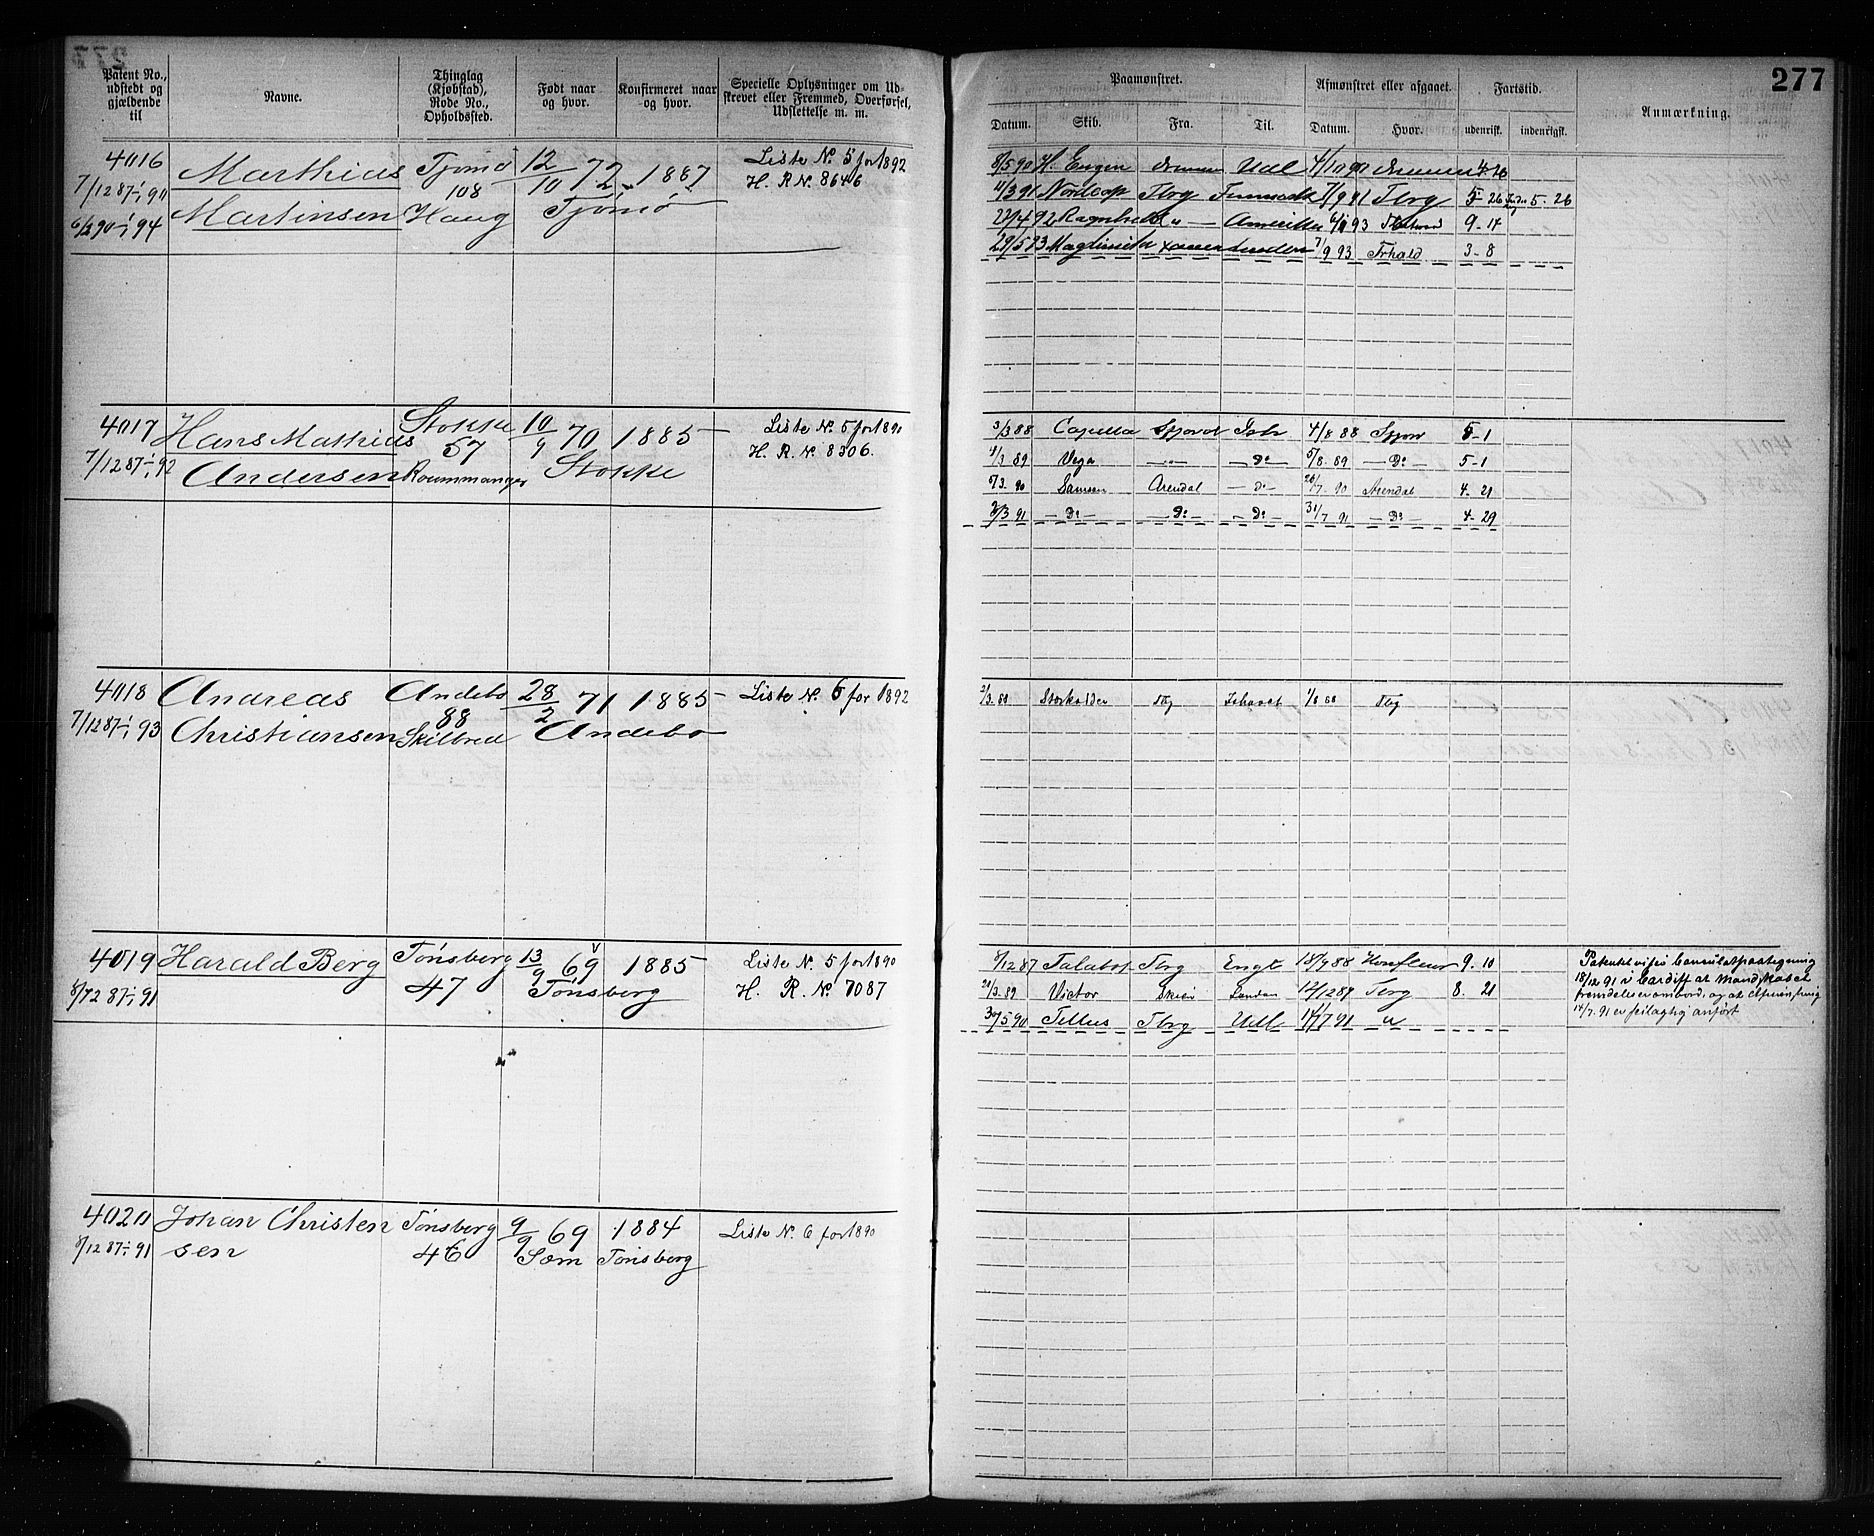 277
Patent No., udstedt og gjældende til
Navne.
Thinglag (Kjøbstad), Rode No., Opholdssted.
Født naar og hvor.
Konfirmeret naar og hvor.
Specielle Oplysninger om Udskrevet eller Fremmed, Overførsel, Udslettelse m. m.
Paamønstret.
Afmønstret eller afgaaet.
Fartstid.
Anmærkning.
Datum. Skib. Fra. Til. Datum. Hvor. udenrikſ. indenrigſt.
4016 Marthias Tjømø 12/10 72 1887 Liste N. 5 for 1892
7/12 87-1/1 90 108 H. R. N. 8646
6/2 90-1/1 94 Martinsen Haug Tjømø
8/5 90 H. Engen Udl 4/10 91 4-26
11/3 91 Nordcap Tbrg 7/9 91 Tbrg 5-26 5-26
27/4 92 Ragnhild " Amerika 93 9-17
29/5 93 London 7/9 93 Frhald 3-8
4017 Hans Mathias Stokke 10/9 70 1885 Liste N. 5 for 1890
7/12 87-1/1 92 57 H. R. N. 8306.
Andersen Roummanger Stokke
3/3 88 Capella Ish 4/8 88 5-1
1/3 89 Vega -"- -Do- 5/8 89 -Do- 5-1
5/3 90 Samson Arendal -Do- 26/7 90 Arendal 4-21
2/3 91 -Do- -Do- -Do- 31/7 91 -Do- 4-29
4018 Andreas Andebo 28/2 71 1885 Liste N. 6 for 1892
7/12 87-1/1 93 88
Christiansen Skilbred Andebo
2/3 88 Tbg Ishavet 1/8 88 Tbg
4019 Harald Berg Tønsberg 13/9 69 1885 Liste N. 5 for 1890
8/12 87-1/1 91 47 Tønsberg H. R. N. 7087
8/12 87 Talabot Tbrg Engl 18/9 88 Honfleur 9. 10
21/3 89 Victor London 12/12 89 Tbrg 8. 21
30/5 90 Tellus Tbrg Udl 14/7 91 "
Patentet vises Consulatpaategning
18/12 91 i Cardiff at Mandskabet
fremdeles er ombord, og at afmønstring
14/7. 91 er feilagtig anført
4020 Johan Christen Tønsberg 9/9 69 1884 Liste N. 6 for 1890
8/12 87-1/1 91 sen 46 Sem Tønsberg